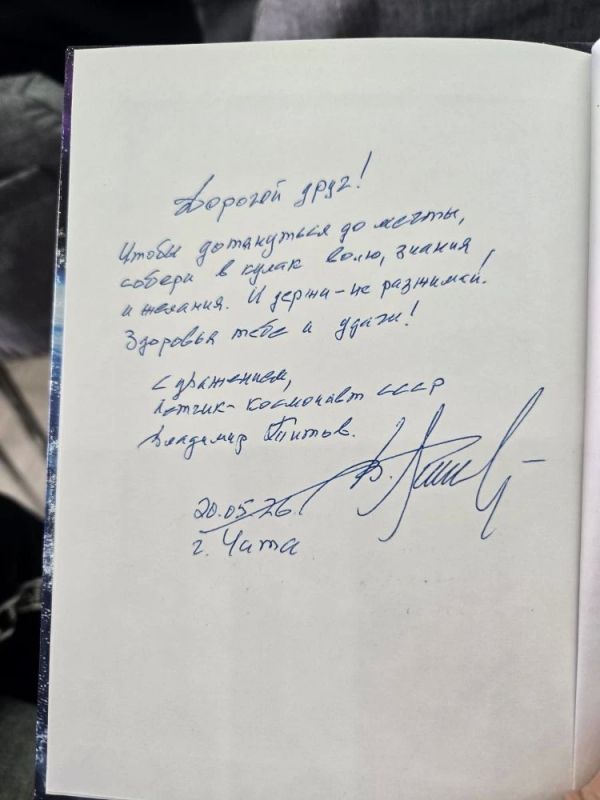 Дорогой друг!
Чтобы дотянуться до мечты,
собери в кулак волю, знания
и желания. И держи - не разжимай!
Здоровья тебе и удачи!
С уважением,
Летчик-космонавт СССР
Владимир Титов.
20.05.26.
г. Чита